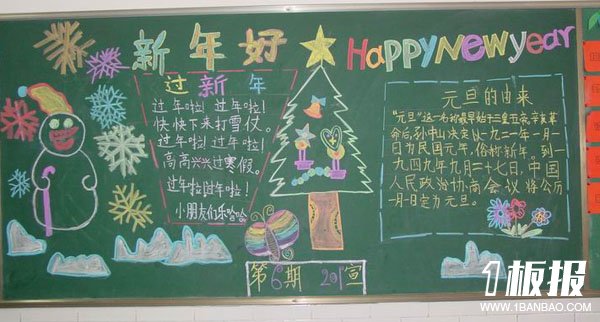 新年好
HAPPY New year
过新年
过年啦! 过年啦!
快快下来打雪仗。
过年啦! 过年啦!
高高兴兴过寒假。
过年啦过年啦!
小朋友们乐哈哈。
元旦的由来
"元旦"这一名称最早始于三皇五帝,辛亥革
命后,孙中山决定以一九一二年一月一日
为民国元年,俗称新年。到一
九四九年九月二十七日,中国
人民政治协商会议将公历
一月一日定为元旦。
第6期 201宣
1板报
WWW.1BANBAO.COM